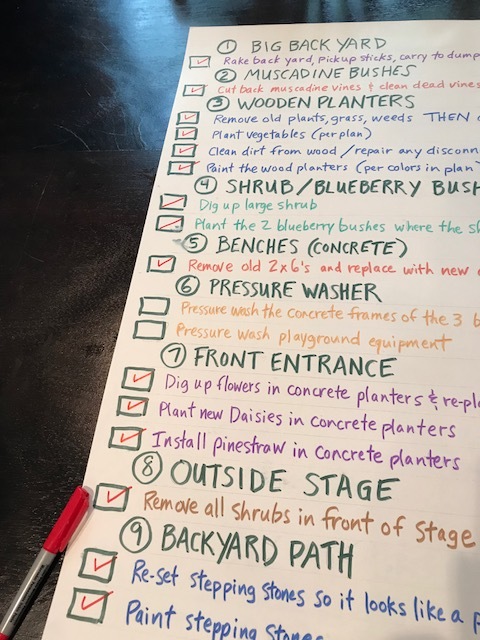 ① BIG BACK YARD
Rake back yard, pickup sticks, carry to dump
② MUSCADINE BUSHES
Cut back muscadine vines & clean dead vines
③ WOODEN PLANTERS
Remove old plants, grass, weeds THEN
Plant vegetables (per plan)
Clean dirt from wood / repair any disconn
Paint the wood planters (per colors in plan
④ SHRUB/BLUEBERRY BUSH
Dig up large shrub
Plant the 2 blueberry bushes where the sh
⑤ BENCHES (CONCRETE)
Remove old 2x6's and replace with new
⑥ PRESSURE WASHER
Pressure wash the concrete frames of the 3 b
Pressure wash playground equipment
⑦ FRONT ENTRANCE
Dig up flowers in concrete planters & re-pla
Plant new Daisies in concrete planters
Install pinestraw in concrete planters
⑧ OUTSIDE STAGE
Remove all shrubs in front of stage
⑨ BACKYARD PATH
Re-set stepping stones so it looks like a p
Paint stepping stones